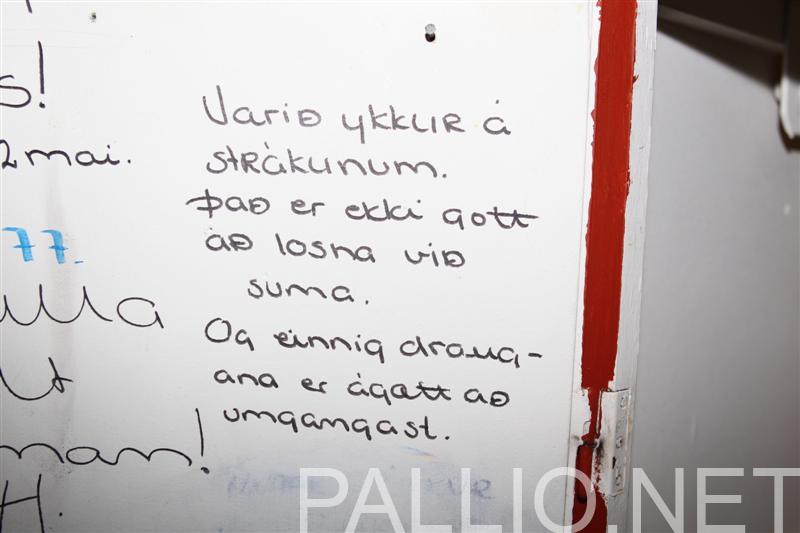 s!
2 mai.
77.
Varið ykkur á
strákunum.
Það er ekki gott
að losna við
suma.
Og einnig draug-
ana er ágætt að
umgangast.
man!
H.
PALLIO.NET